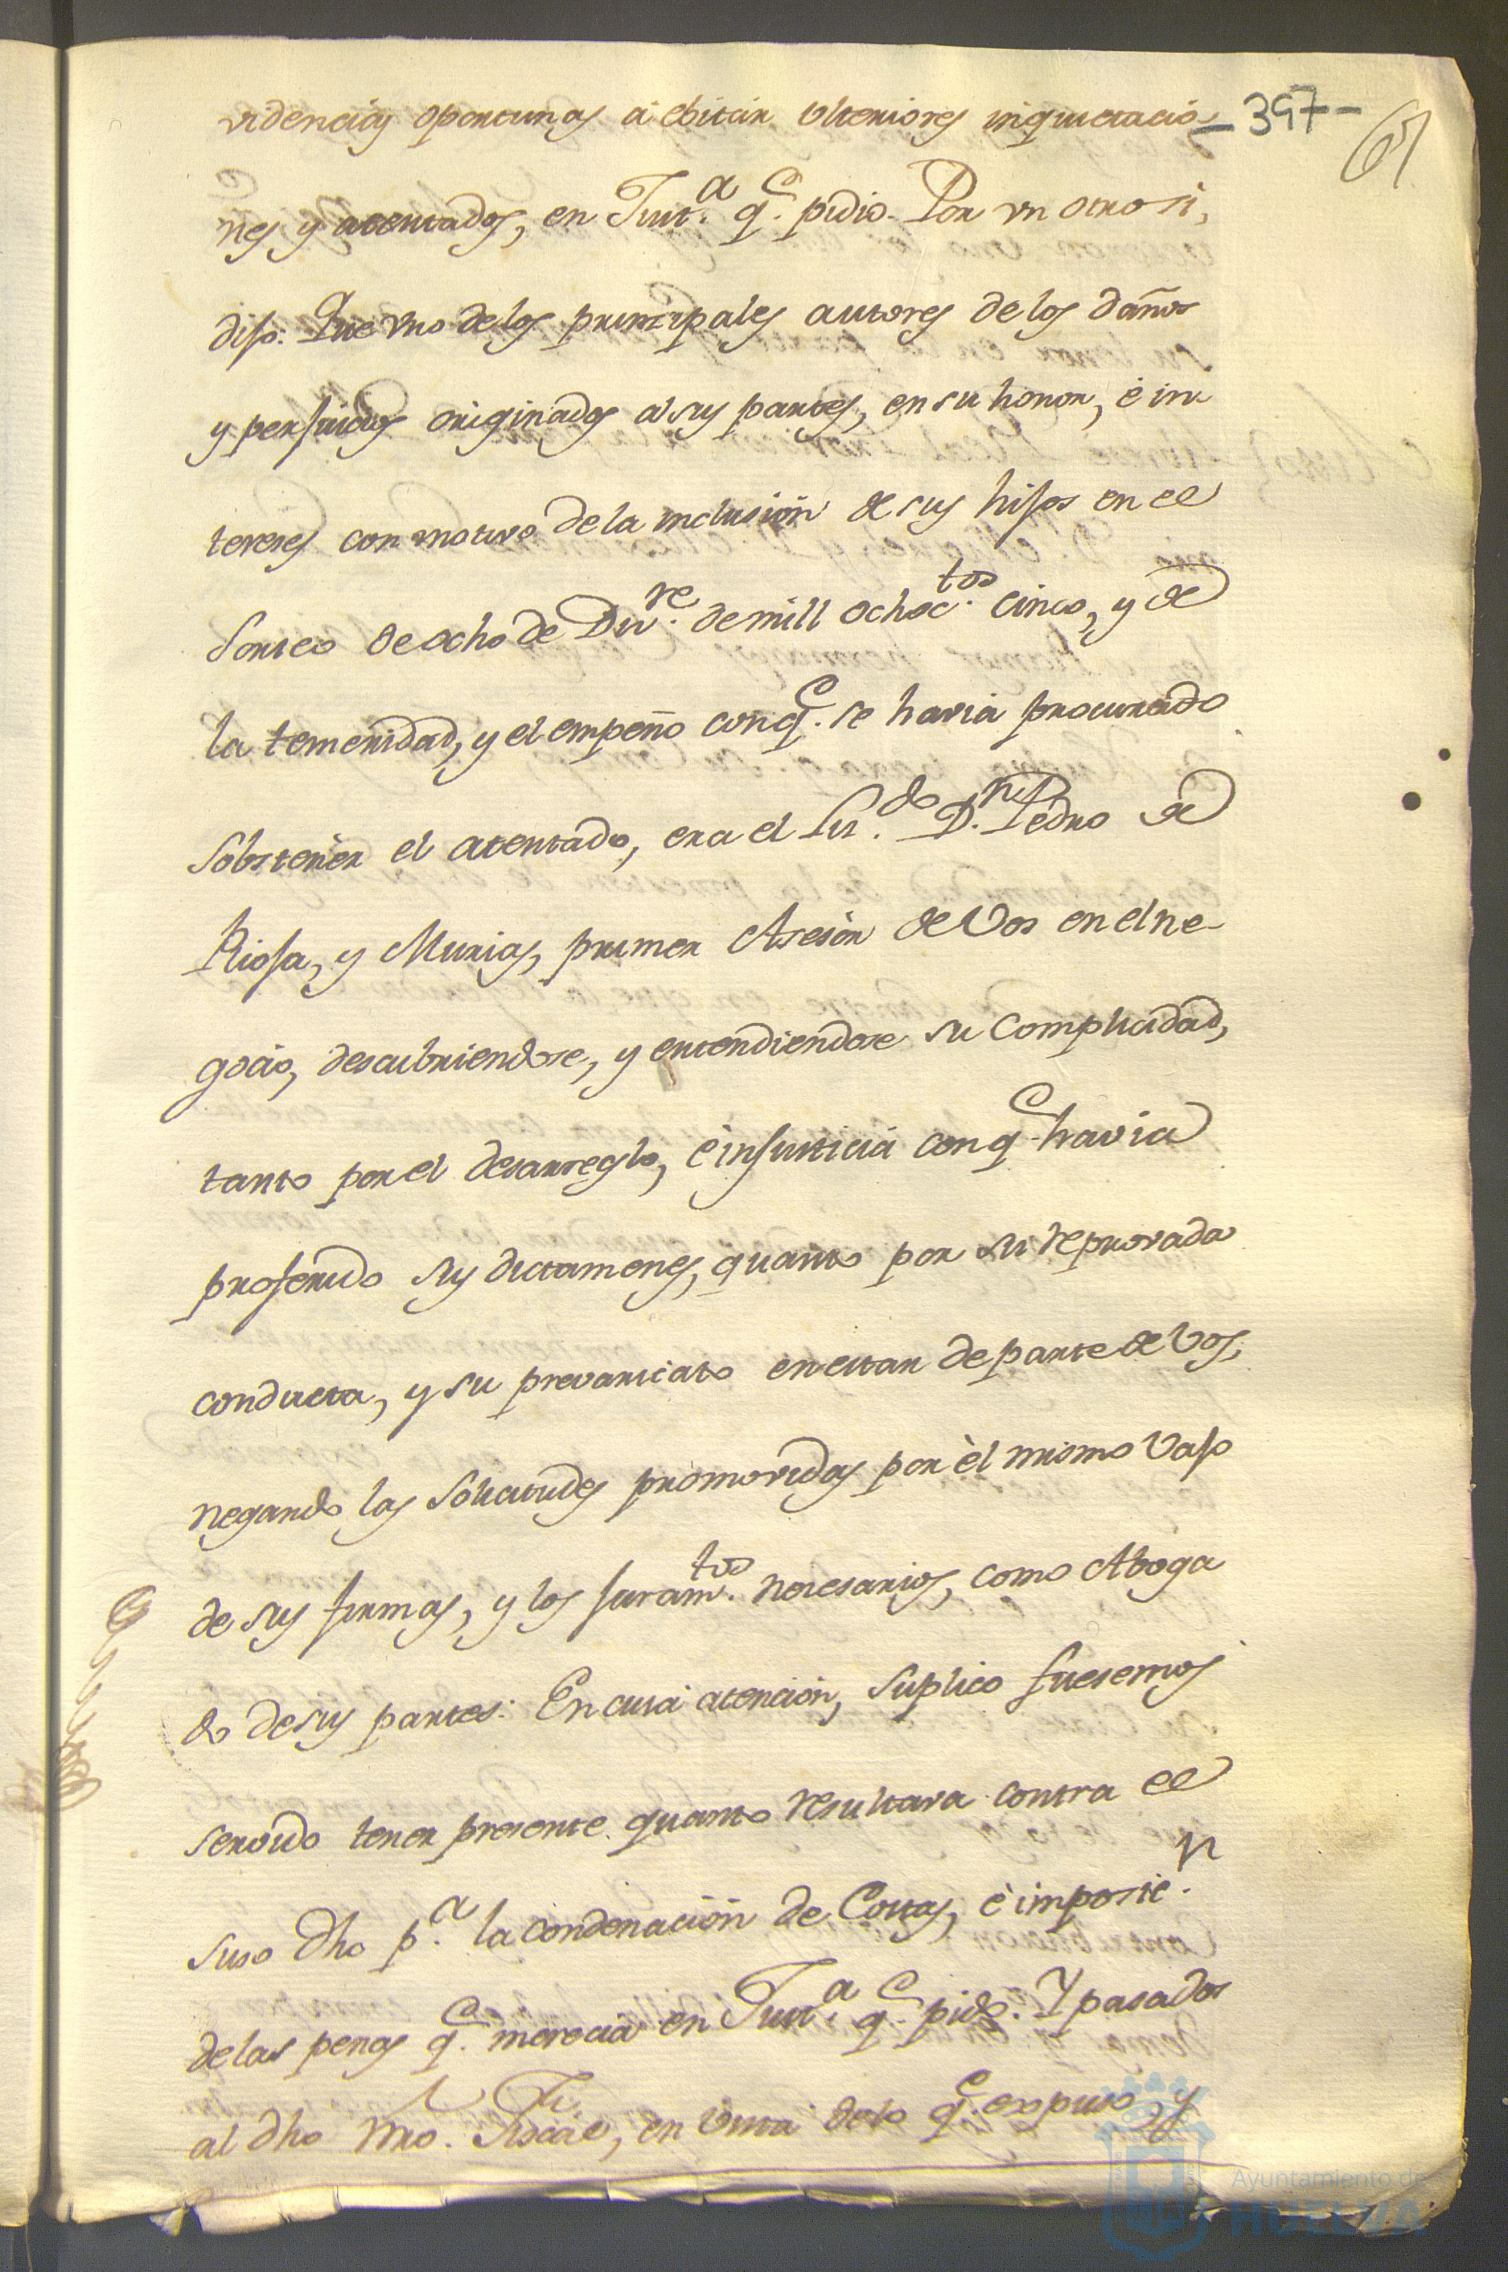 videncias oportunas á ebitar ulteriores inquietacio- -397-
65
nes y atentados, en Just.ª q.e pidio. Por un otro si,
dijo: Que uno de los principales autores de los daños
y perjuicios originados a sus partes, en su honor, é in
tereses con motivo de la inclusión de sus hijos en el
Sorteo de ocho de Div.re de mill ochoc.tos cinco, y de
la temeridad, y el empeño con q.e se havia procurado
sobstener el atentado, era el Lic.do D.n Pedro de
Riofa, y Murias, primer Asesor de Vos en el ne-
gocio, descubriendose, y entendiendose su complicidad,
tanto por el desarreglo, é injusticia con q.e havia
proferido sus dictamenes, quanto por su reprovada
conducta, y su prevaricato en estar de parte de Vos,
negando las solicitudes promovidas por él mismo vajo
de sus firmas, y los juram.tos necesarios, como Aboga
do de sus partes: En cuia atención, suplico fuesemos
servido tener presente quanto resultara contra el
suso dho p.a la condenación de Costas, é imposic.n
de las penas q.e merecia en Just.a q.e pidio. Y pasados
al dho Nro. Fiscal, en vista de lo q.e expuso, y
Ayuntamiento de
HUELVA